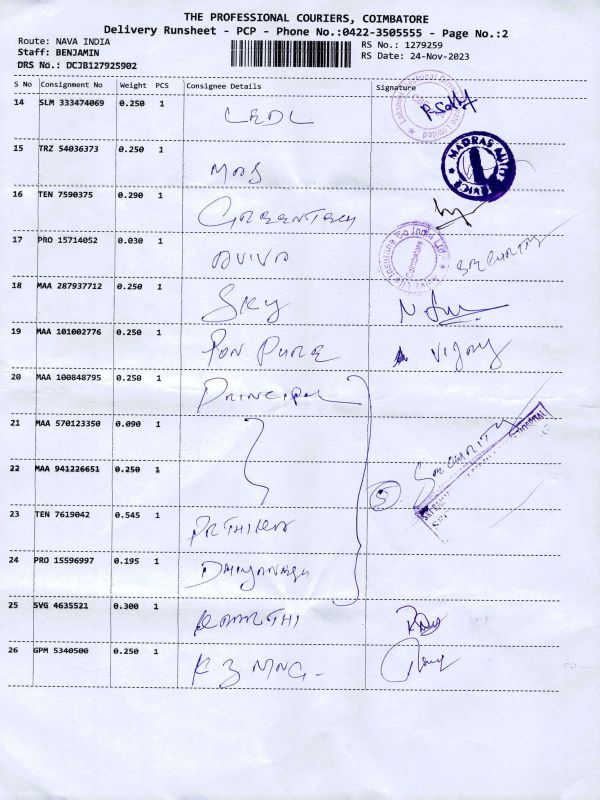 THE PROFESSIONAL COURIERS, COIMBATORE
Delivery Runsheet - PCP - Phone No.:0422-3505555 - Page No.:2
Route: NAVA INDIA
RS No.: 1279259
Staff: BENJAMIN
RS Date: 24-Nov-2023
DRS No.: DCJB127925902
S No Consignment No Weight PCS Consignee Details Signature
14 SLM 333474069 0.250 1
15 TRZ 54036373 0.250 1 MADRAS AUTO SERVICE
16 TEN 7590375 0.290 1 GREENTECH
17 PRO 15714052 0.030 1 AVIVA SECURITY
18 MAA 287937712 0.250 1 SKY
19 MAA 101002776 0.250 1 PON PURE VIJAY
20 MAA 100848795 0.250 1 PRINCIPAL
21 MAA 570123350 0.090 1 SECURITY
22 MAA 941226651 0.250 1 5
23 TEN 7619042 0.545 1
24 PRO 15596997 0.195 1
25 SVG 4635521 0.300 1
26 GPM 5340500 0.250 1